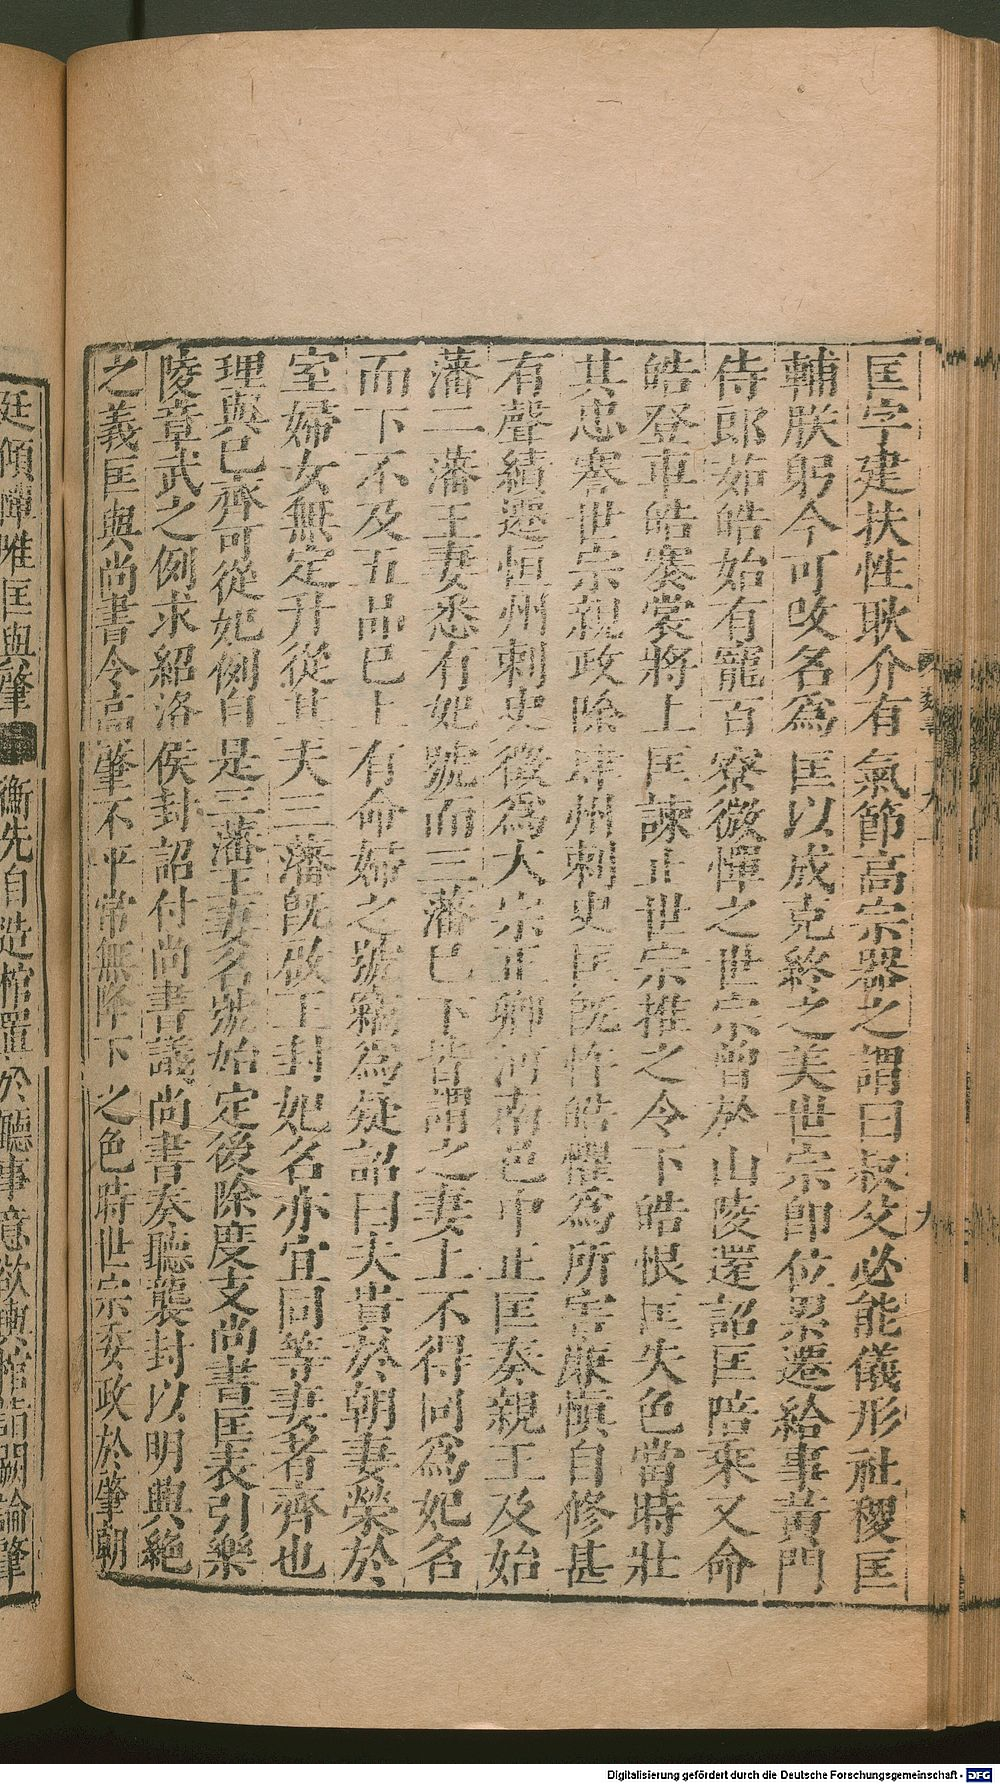 匡字建扶性耿介有氣節高宗器之謂曰叔父必能儀形社稷匡
輔朕躬今可改名為匡以成克終之美世宗即位累遷給事黃門
侍郎茹皓始有寵百寮微憚之世宗曾於山陵還詔匡陪乘又命
皓登車皓褰裳將上匡諫止世宗推之令下皓恨匡失色當時壯
其忠謇世宗親政除肆州刺史匡既忤皓懼為所害廉慎自修甚
有聲績遷恒州刺史徵為大宗正卿河南邑中正匡奏親王及始
藩二藩王妻悉有妃號而三藩已下皆謂之妻上不得同為妃名
而下不及五品已上有命婦之號竊為疑詔曰夫貴於朝妻榮於
室婦女無定升從其夫三藩既啟王封妃名亦宜同等妻者齊也
理與己齊可從妃例自是三藩王妻名號始定後除度支尚書匡表引樂
陵章武之例求紹洛侯封詔付尚書議尚書奏聽襲封以明興絕
之義匡與尚書令高肇不平常無降下之色時世宗委政於肇朝
廷傾憚唯匡與肇衡先自造棺置於聽事意欲輿棺詣闕論肇
Digitalisierung gefördert durch die Deutsche Forschungsgemeinschaft - DFG